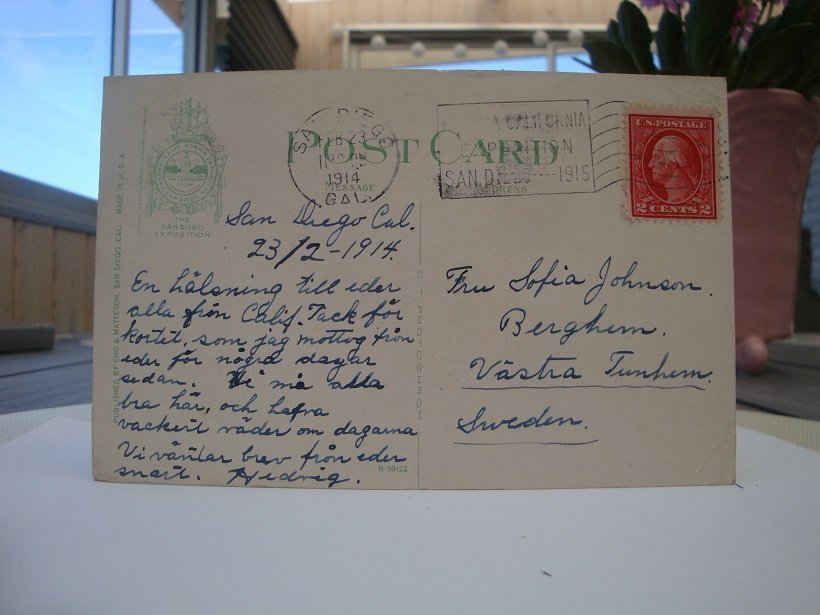 POST CARD
MESSAGE
ADDRESS
THE
SAN DIEGO
EXPOSITION
SAN DIEGO
FEB 23
1914
CAL.
CALIFORNIA
EXPOSITION
SAN DIEGO----1915
U.S. POSTAGE
2 CENTS 2
San Diego Cal.
23/2-1914.
En hälsning till eder
alla från Calif. Tack för
kortet, som jag mottog från
eder för några dagar
sedan. Vi må alla
bra här, och hafva
vackert väder om dagarna
Vi väntar brev från eder
snart. Hedvig.
Fru Sofia Johnson.
Berghem.
Västra Tunhem.
Sweden.
PUBLISHED BY ENO & MATTESON, SAN DIEGO, CAL. MADE IN U.S.A.
R-39122